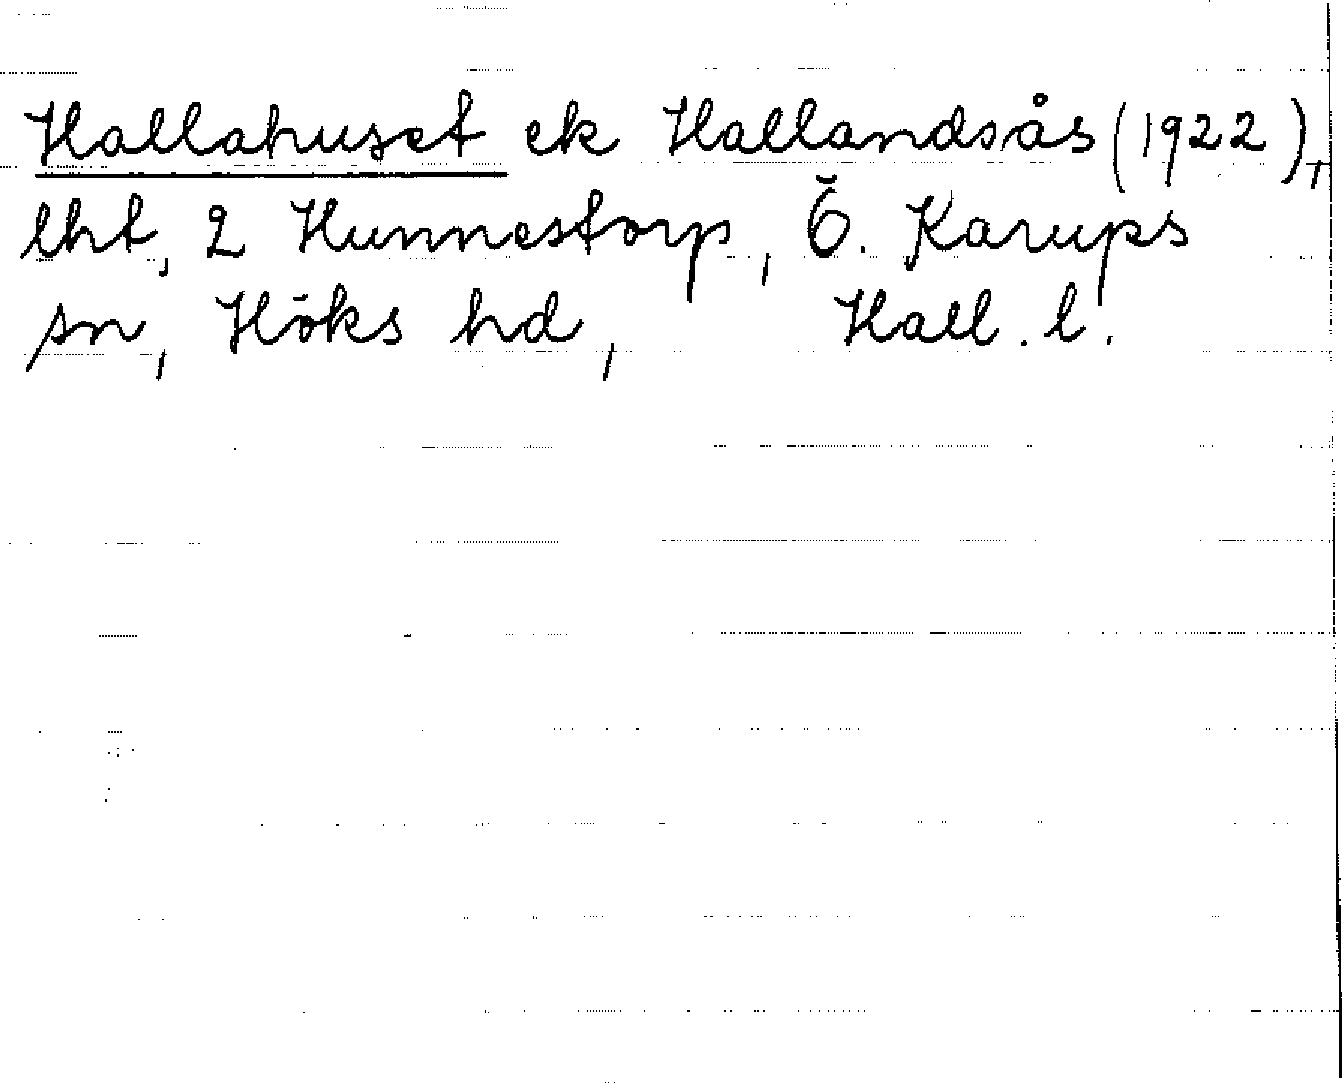 Hallahuset ek Hallandsås (1922),
lht, 2 Hunnestorp, Ö. Karups
sn, Höks hd, Hall. l.